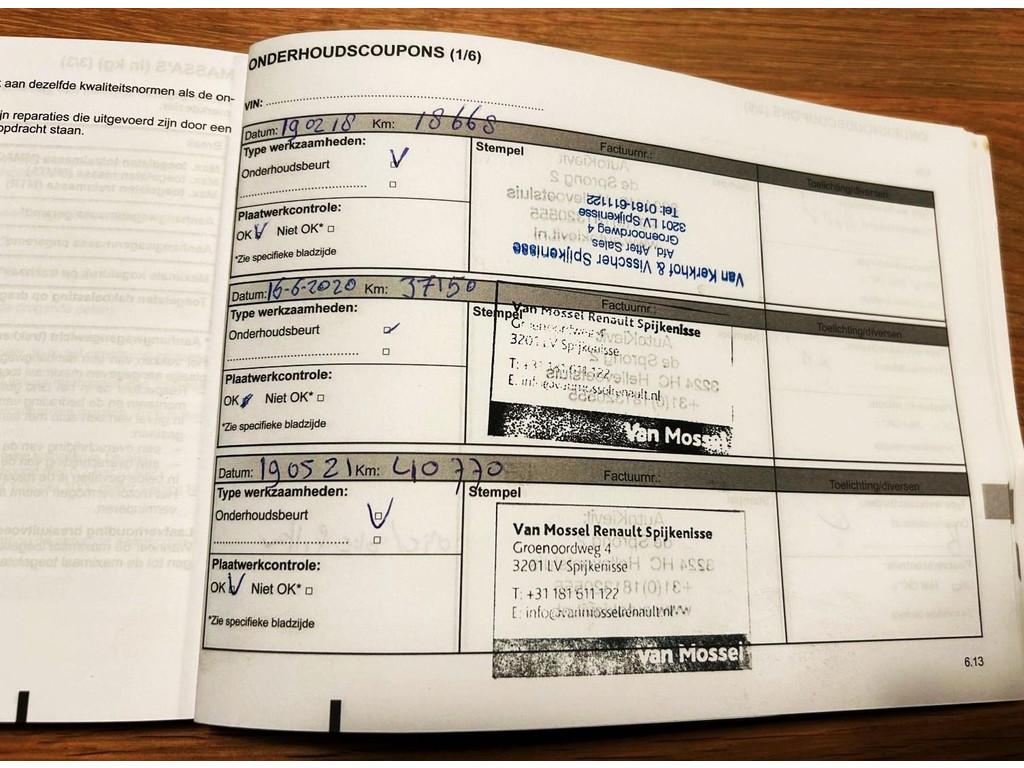 aan dezelfde kwaliteitsnormen als de on-
jn reparaties die uitgevoerd zijn door een
opdracht staan.
ONDERHOUDSCOUPONS (1/6)
VIN:
Datum: 190218 Km: 18668 Factuurnr.: Toelichting/diversen
Type werkzaamheden:
Onderhoudsbeurt
Plaatwerkcontrole:
OK Niet OK*
*Zie specifieke bladzijde
Stempel
Van Kerkhof & Visscher Spijkenisse
Afd. After Sales
Groenoordweg 4
3201 LV Spijkenisse
Tel: 0181-611122
Datum: 16-6-2020 Km: 37150 Factuurnr.: Toelichting/diversen
Type werkzaamheden:
Onderhoudsbeurt
Plaatwerkcontrole:
OK Niet OK*
*Zie specifieke bladzijde
Stempel
Van Mossel Renault Spijkenisse
Groenoordweg 4
3201 LV Spijkenisse
T: +31 181 611 122
E: info@vanmosselrenault.nl
Van Mossel
Datum: 190521 Km: 40770 Factuurnr.: Toelichting/diversen
Type werkzaamheden:
Onderhoudsbeurt
Plaatwerkcontrole:
OK Niet OK*
*Zie specifieke bladzijde
Stempel
Van Mossel Renault Spijkenisse
Groenoordweg 4
3201 LV Spijkenisse
T: +31 181 611 122
E: info@vanmosselrenault.nl
Van Mossel
6.13